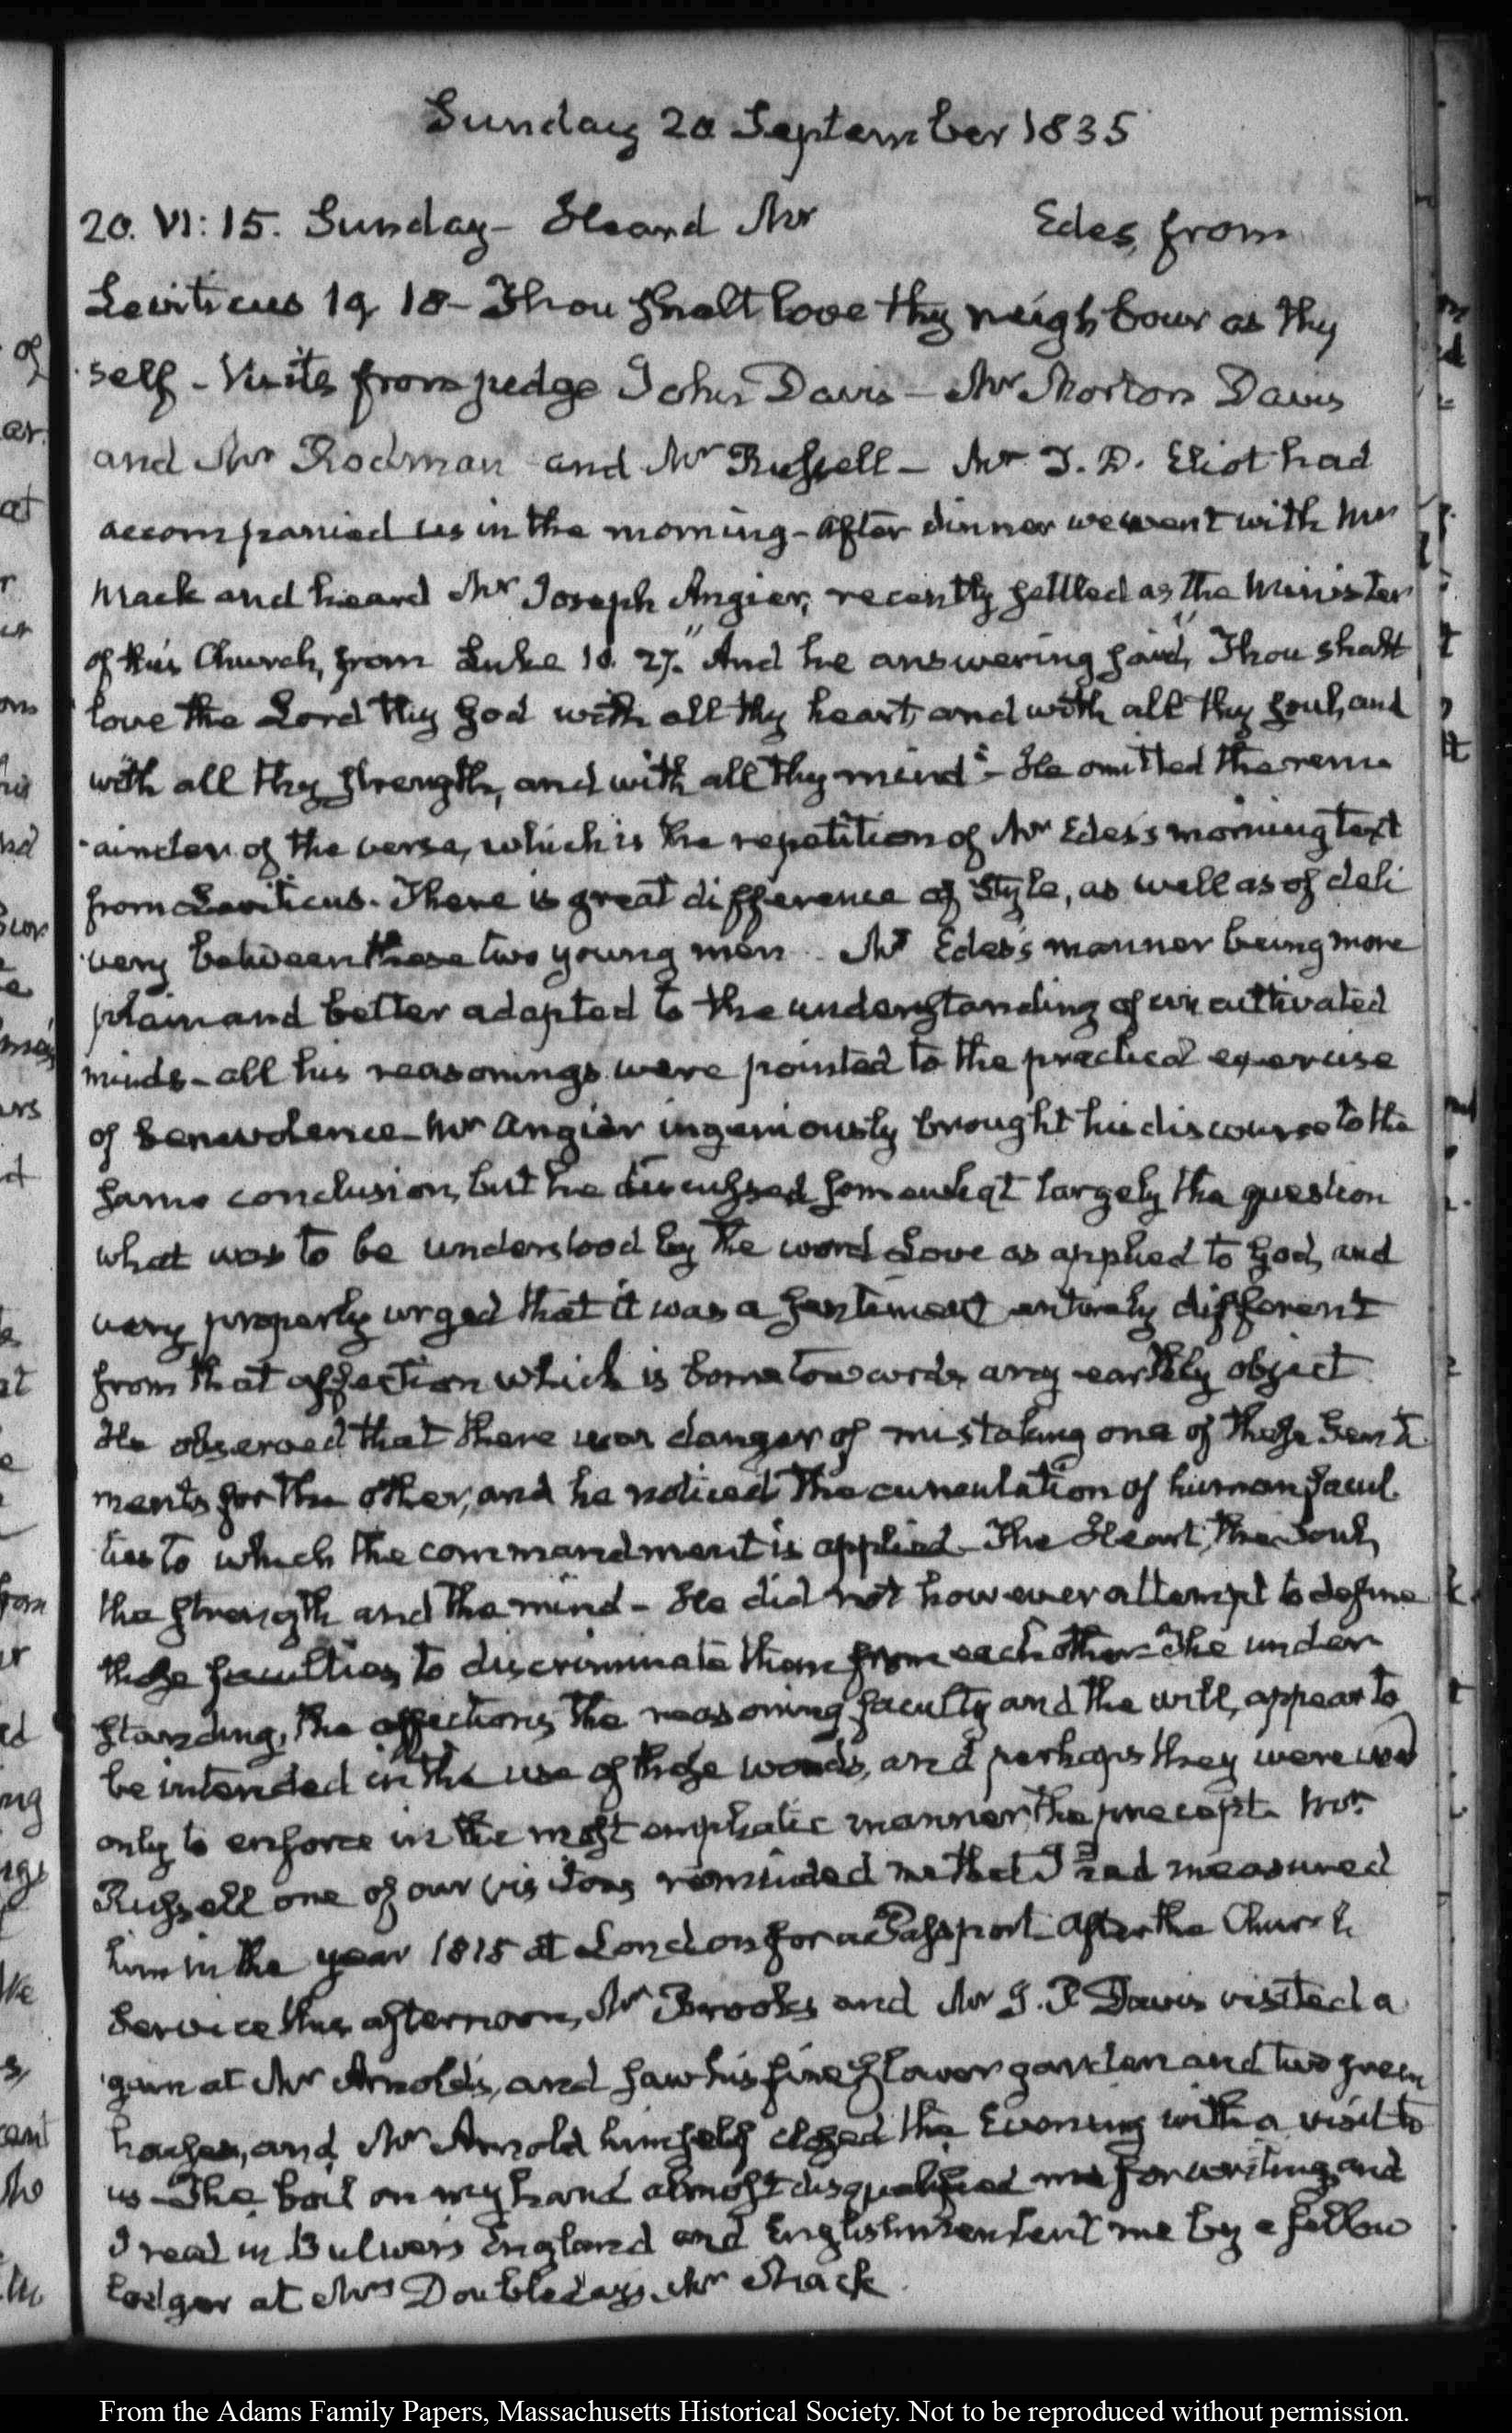 Sunday 20 September 1835
20. VI: 15. Sunday - Heard Mr Edes, from
Leviticus 19 18 - Thou shalt love thy neighbour as thy
self - Visits from judge John Davis - Mr Morton Davis
and Mr Rodman and Mr Russell - Mr T. D. Eliot had
accompanied us in the morning - After dinner we went with Mr
Mack and heard Mr Joseph Angier, recently settled as the Minister
of this Church, from Luke 10. 27. "And he answering said," Thou shalt
love the Lord thy God with all thy heart, and with all thy soul, and
with all thy strength, and with all thy mind" - He omitted the rem
ainder of the verse, which is the repetition of Mr Edes's morning text
from Leviticus. There is great difference of style, as well as of deli
very between these two young men. Mr Edes's manner being more
plain and better adapted to the understanding of uncultivated
minds - all his reasonings were pointed to the practical exercise
of benevolence - Mr Angier ingeniously brought his discourse to the
same conclusion, but he discussed somewhat largely the question
what was to be understood by the word Love as applied to God, and
very properly urged that it was a sentiment entirely different
from that affection which is borne towards any earthly object
He observed that there was danger of mistaking one of these Senti
ments for the other, and he noticed the cumulation of human facul
ties to which the commandment is applied - The Heart, the Soul,
the strength and the mind - He did not however attempt to define
these faculties, to discriminate them from each other - The under
standing, the affections, the reasoning faculty and the will, appear to
be intended in the use of those words, and perhaps they were used
only to enforce in the most emphatic manner, the precept. Mr
Russell one of our visitors reminded me that I had measured
him in the year 1815 at London for a Passport - After the Church
Service this afternoon, Mr Brooks and Mr I. P. Davis visited a
gain at Mr Arnold's, and saw his fine flower garden and two green
houses, and Mr Arnold himself closed the Evening with a visit to
us - The boil on my hand almost disqualified me for writing, and
I read in Bulwer's England and Englishmen lent me by a fellow
lodger at Mrs Doubleday's Mr Mack
of
ar.
at
r
From the Adams Family Papers, Massachusetts Historical Society. Not to be reproduced without permission.